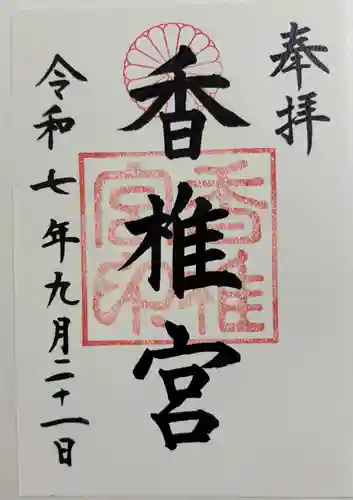 奉拝
香椎宮
令和七年九月二十一日
香椎
宮印